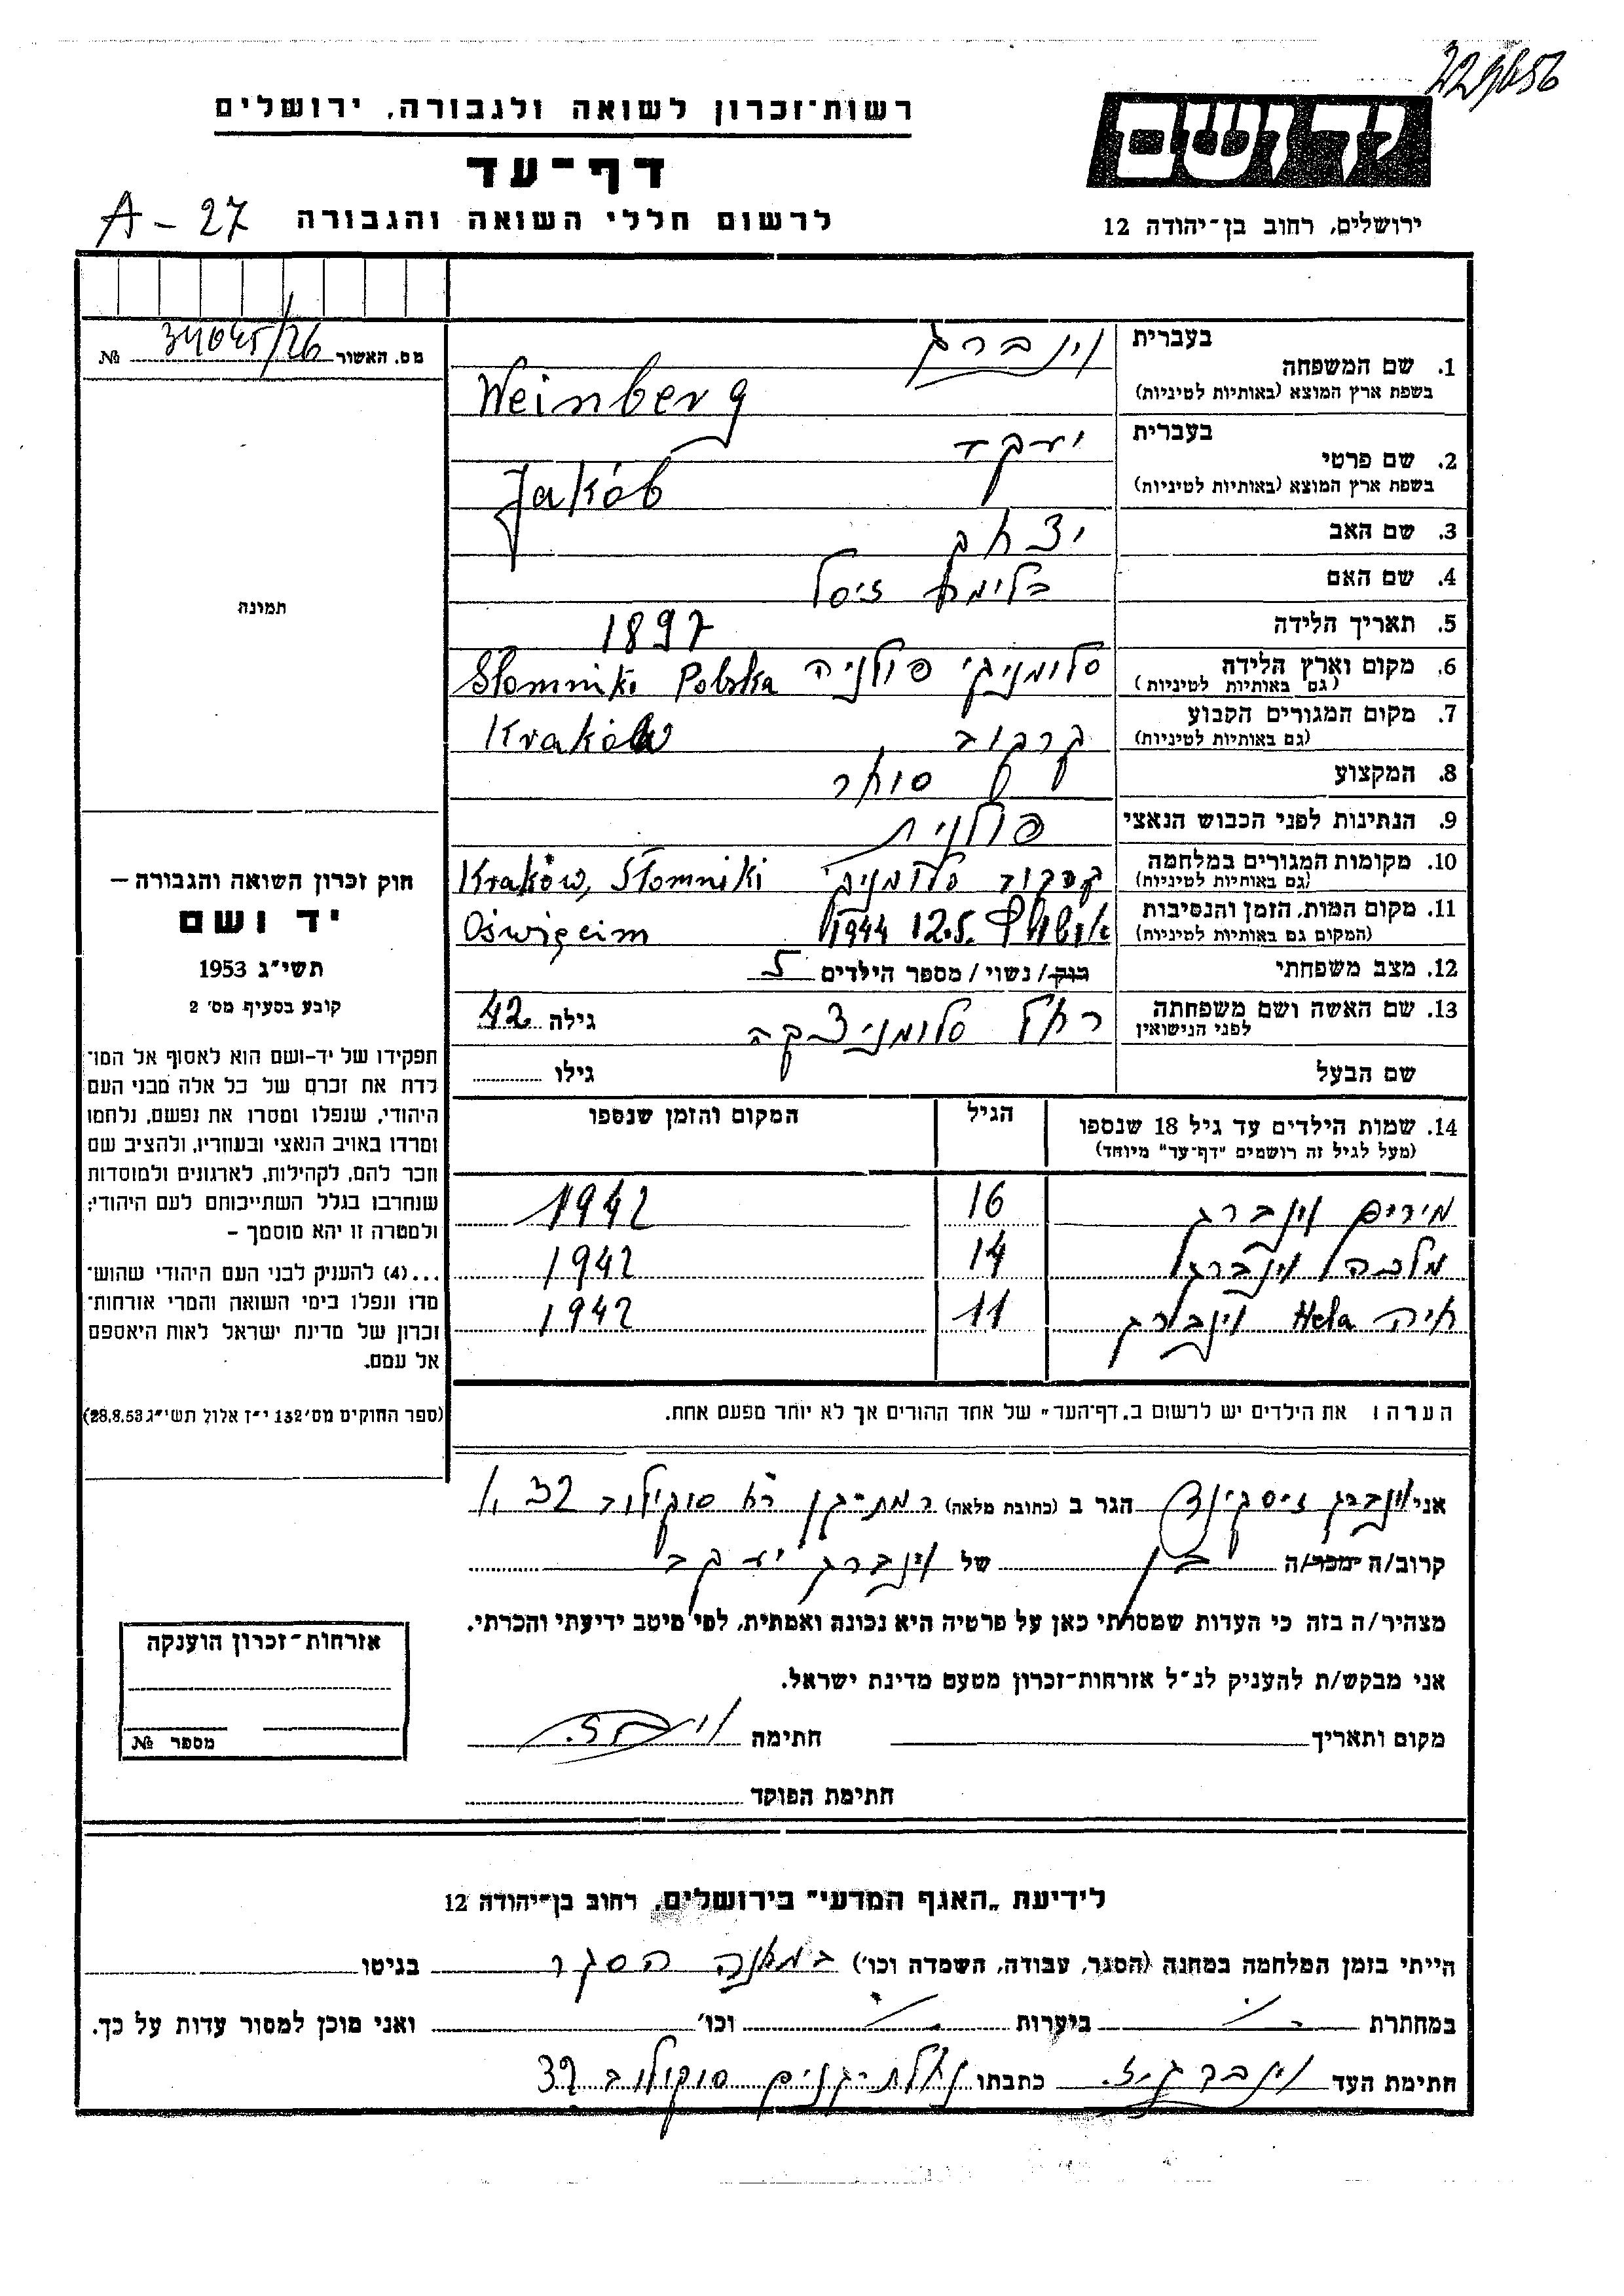 רשות־זכרון לשואה ולגבורה, ירושלים
יד ושם
דף־עד
לרשום חללי השואה והגבורה
A - 27
ירושלים, רחוב בן־יהודה 12
מס. האשור 34045/26 №
תמונה
חוק זכרון השואה והגבורה —
יד ושם
תשי״ג 1953
קובע בסעיף מס׳ 2
תפקידו של יד-ושם הוא לאסוף אל המו־
לדת את זכרם של כל אלה מבני העם
היהודי, שנפלו ומסרו את נפשם, נלחמו
ומרדו באויב הנאצי ובעוזריו, ולהציב שם
וזכר להם, לקהילות, לארגונים ולמוסדות
שנחרבו בגלל השתייכותם לעם היהודי;
ולמטרה זו יהא מוסמך —
...(4) להעניק לבני העם היהודי שהוש־
מדו ונפלו בימי השואה והמרי אזרחות־
זכרון של מדינת ישראל לאות היאספם
אל עמם.
(ספר החוקים מס׳ 132 י״ז אלול תשי״ג 28.8.53)
בעברית וינברג
1. שם המשפחה
בשפת ארץ המוצא (באותיות לטיניות) Weinberg
בעברית יעקב
2. שם פרטי
בשפת ארץ המוצא (באותיות לטיניות) Jakób
3. שם האב יצחק
4. שם האם בלימה זיסל
5. תאריך הלידה 1897
6. מקום וארץ הלידה סלומניקי פולניה Słomniki Polska
(גם באותיות לטיניות)
7. מקום המגורים הקבוע קרקוב Kraków
(גם באותיות לטיניות)
8. המקצוע סוחר
9. הנתינות לפני הכבוש הנאצי פולנית
10. מקומות המגורים במלחמה קרקוב סלומניקי Kraków, Słomniki
(גם באותיות לטיניות)
11. מקום המות, הזמן והנסיבות 12.5. 1944 Oświęcim
(המקום גם באותיות לטיניות)
12. מצב משפחתי רוק/נשוי/מספר הילדים 5
13. שם האשה ושם משפחתה רחל סלומניצקה גילה 42
לפני הנישואין
שם הבעל גילו
14. שמות הילדים עד גיל 18 שנספו הגיל המקום והזמן שנספו
(מעל לגיל זה רושמים ״דף־עד״ מיוחד)
מירים וינברג 16 1942
מלכה וינברג 14 1942
חיה Hela וינברג 11 1942
הערה: את הילדים יש לרשום ב„דף־העד״ של אחד ההורים אך לא יותר מפעם אחת.
אני וינברג זיסקינד הגר ב (כתובת מלאה) רמת־גן רח סוקולוב 32
קרוב/ה מכר/ה בן של וינברג יעקב
מצהיר/ה בזה כי העדות שמסרתי כאן על פרטיה היא נכונה ואמתית, לפי מיטב ידיעתי והכרתי.
אני מבקש/ת להעניק לנ״ל אזרחות־זכרון מטעם מדינת ישראל.
מקום ותאריך חתימה
חתימת הפוקד
אזרחות־זכרון הוענקה
מספר №
לידיעת „האגף המדעי״ בירושלים, רחוב בן־יהודה 12
הייתי בזמן המלחמה במחנה (הסגר, עבודה, השמדה וכו׳) במחנה הסגר בגיטו
במחתרת ביערות וכו׳ ואני מוכן למסור עדות על כך.
חתימת העד וינברג ז. כתבתו נחלת־גנים סוקולוב 32